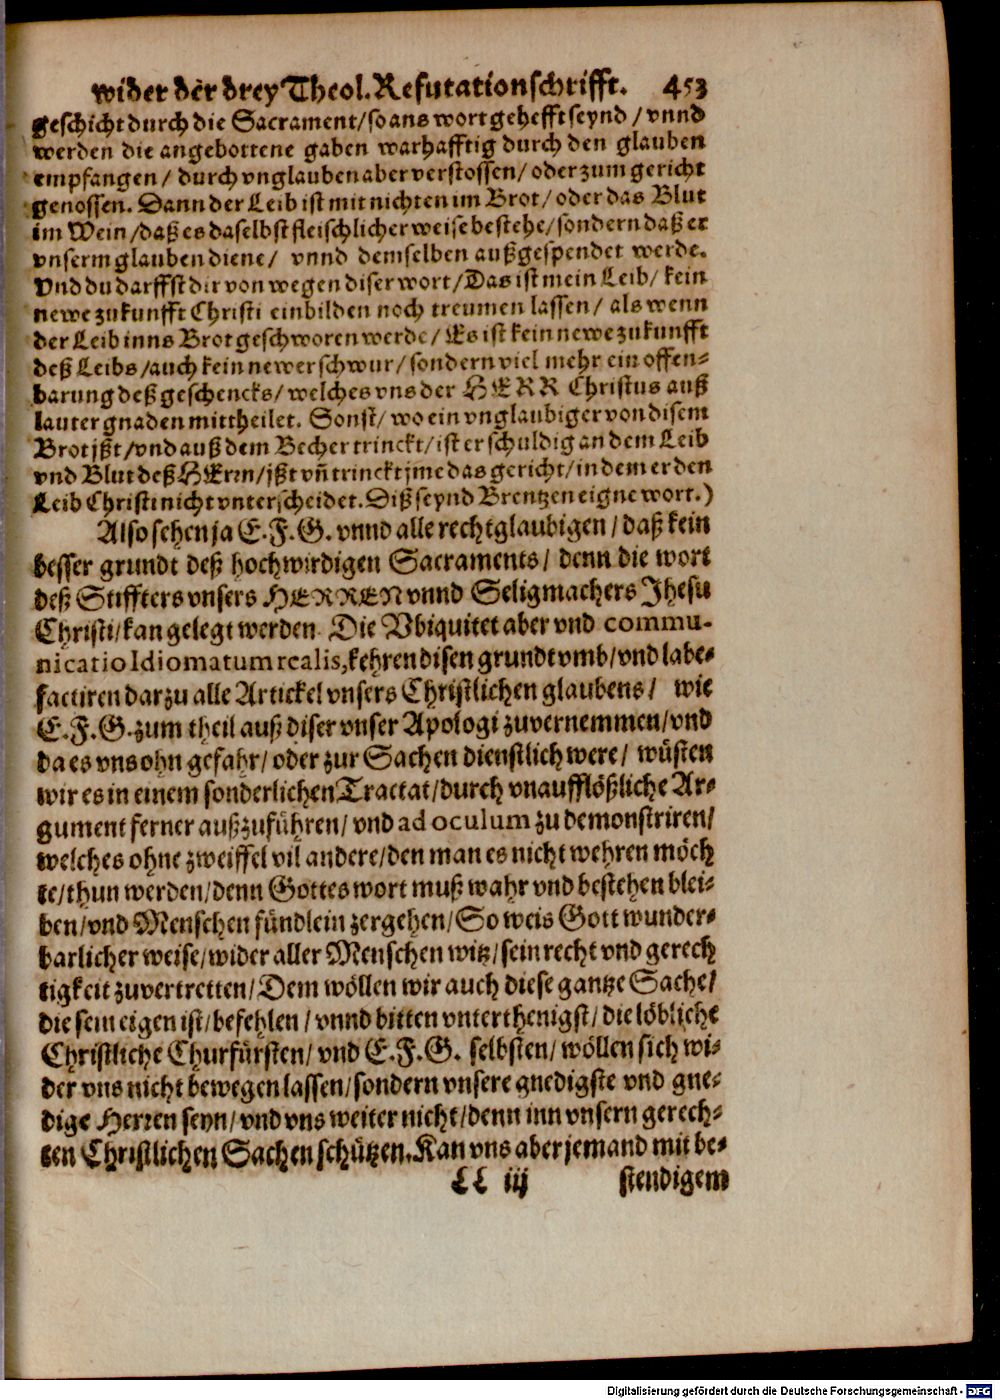 wider der drey Theol. Refutationschrifft. 453
geschicht durch die Sacrament/ so ans wort gehefft seynd / vnnd
werden die angebottene gaben warhafftig durch den glauben
empfangen/ durch vnglauben aber verstossen/ oder zum gericht
genossen. Dann der Leib ist mit nichten im Brot/ oder das Blut
im Wein/ daß es daselbst fleischlicher weise bestehe/ sondern daß er
vnserm glauben diene/ vnnd demselben außgespendet werde.
Vnd du darffst dir von wegen diser wort/ Das ist mein Leib/ kein
newe zukunfft Christi einbilden noch treumen lassen/ als wenn
der Leib inns Brot geschworen werde/ Es ist kein newe zukunfft
deß Leibs/ auch kein newer schwur/ sondern viel mehr ein offen-
barung deß geschencks/ welches vns der HERR Christus auß
lauter gnaden mittheilet. Sonst/ wo ein vnglaubiger von disem
Brot jßt/ vnd auß dem Becher trinckt/ ist er schuldig an dem Leib
vnd Blut deß HErrn/ jßt vñ trinckt jme das gericht/ in dem er den
Leib Christi nicht vnterscheidet. Diß seynd Brentzen eigne wort.)
Also sehen ja E. F. G. vnnd alle rechtglaubigen/ daß kein
besser grundt deß hochwirdigen Sacraments/ denn die wort
deß Stiffters vnsers HERREN vnnd Seligmachers Jhesu
Christi/ kan gelegt werden. Die Vbiquitet aber vnd commu-
nicatio Idiomatum realis, kehren disen grundt vmb/ vnd labe-
factiren darzu alle Artickel vnsers Christlichen glaubens/ wie
E. F. G. zum theil auß diser vnser Apologi zuvernemmen/ vnd
da es vns ohn gefahr/ oder zur Sachen dienstlich were/ wüsten
wir es in einem sonderlichen Tractat/ durch vnaufflößliche Ar-
gument ferner außzuführen/ vnd ad oculum zu demonstriren/
welches ohne zweiffel vil andere/ den man es nicht wehren möch
te/ thun werden/ denn Gottes wort muß wahr vnd bestehen blei-
ben/ vnd Menschen fündlein zergehen/ So weis Gott wunder-
barlicher weise/ wider aller Menschen witz/ sein recht vnd gerech
tigkeit zuvertretten/ Dem wöllen wir auch diese gantze Sache/
die sein eigen ist/ befehlen/ vnnd bitten vnterthenigst/ die löbliche
Christliche Churfürsten/ vnd E. F. G. selbsten/ wöllen sich wi-
der vns nicht bewegen lassen/ sondern vnsere gnedigste vnd gne-
dige Herren seyn/ vnd vns weiter nicht/ denn inn vnsern gerech-
ten Christlichen Sachen schützen. Kan vns aber jemand mit be-
LL iij stendigem
Digitalisierung gefördert durch die Deutsche Forschungsgemeinschaft - DFG